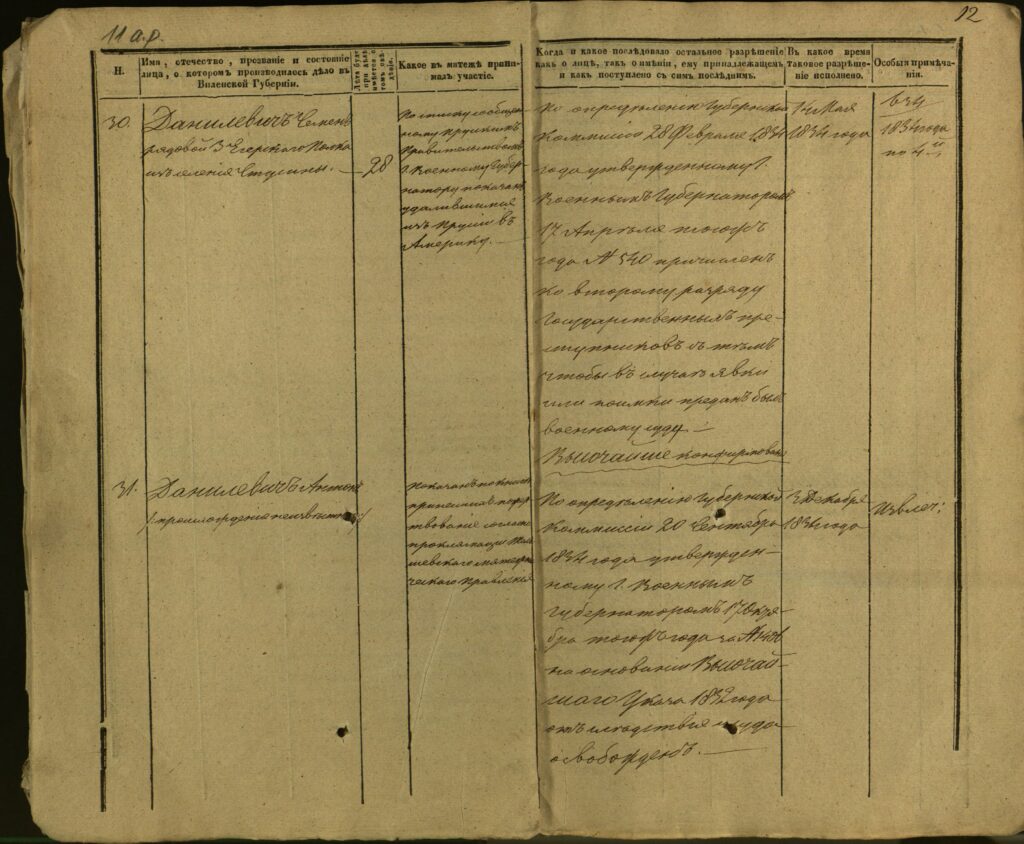 11 а.р.
12
Н.
Имя, отечество, прозваніе и состояніе
лица, о которомъ производилось дѣло въ
Виленской Губерніи.
Какое въ матежѣ прини-
малъ участіе.
Когда и какое послѣдовало остальное разрѣшеніе
какъ о лицѣ, такъ о имѣніи, ему принадлежащемъ
и какъ поступлено съ симъ послѣднимъ.
Въ какое время
таковое разрѣше-
ніе исполнено.
Особыя примѣча-
нія.
30.
Данилевичъ Семенъ
рядовой 3 Егерскаго Полка
28
По списку сообщен-
ному Прускимъ
Правительствомъ
Г. Военному Губер-
натору показанъ
удалившимся
изъ Прусіи въ
Америку.
По опредѣленію Губернской
Коммисіи 28 Февраля 1834
года утвержденному Г.
Военнымъ Губернаторомъ
17 Апрѣля тогожъ
года № 540 причисленъ
ко второму разряду
Государственныхъ пре-
ступниковъ съ тѣмъ
чтобы въ случаѣ явки
или поимки преданъ былъ
военному суду
Высочайше конфирмовано
14 Мая
1834 года
634
1834 года
по 4й
31.
Данилевичъ Антонъ
По опредѣленію Губернской
Коммиссіи 20 Сентября
1834 года утвержден-
ному Г. Военнымъ
Губернаторомъ 17 Октя-
бра тогожъ года за №
на основаніи Высочай-
шаго Указа 1832 года
отъ слѣдствія и суда
освобожденъ.
3 Декабря
1834 года
Извлеч: